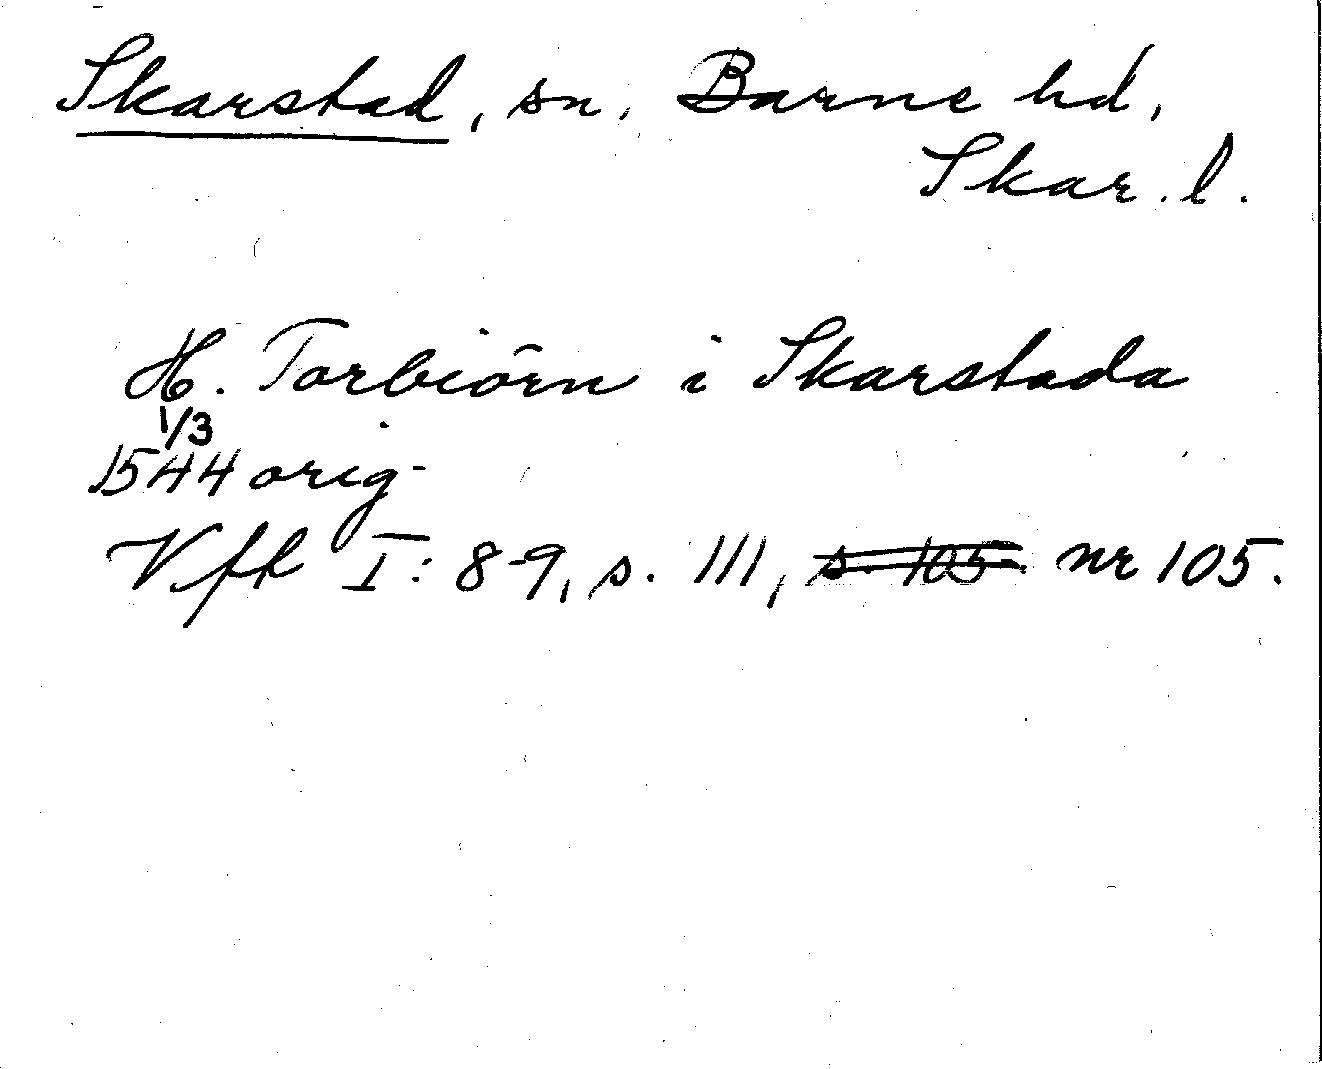 Skarstad, sn, Barne hd,
Skar. l.
H. Torbiörn i Skarstada
1/3
1544 orig
Vfk I: 8-9, s. 111, s. 105. nr 105.